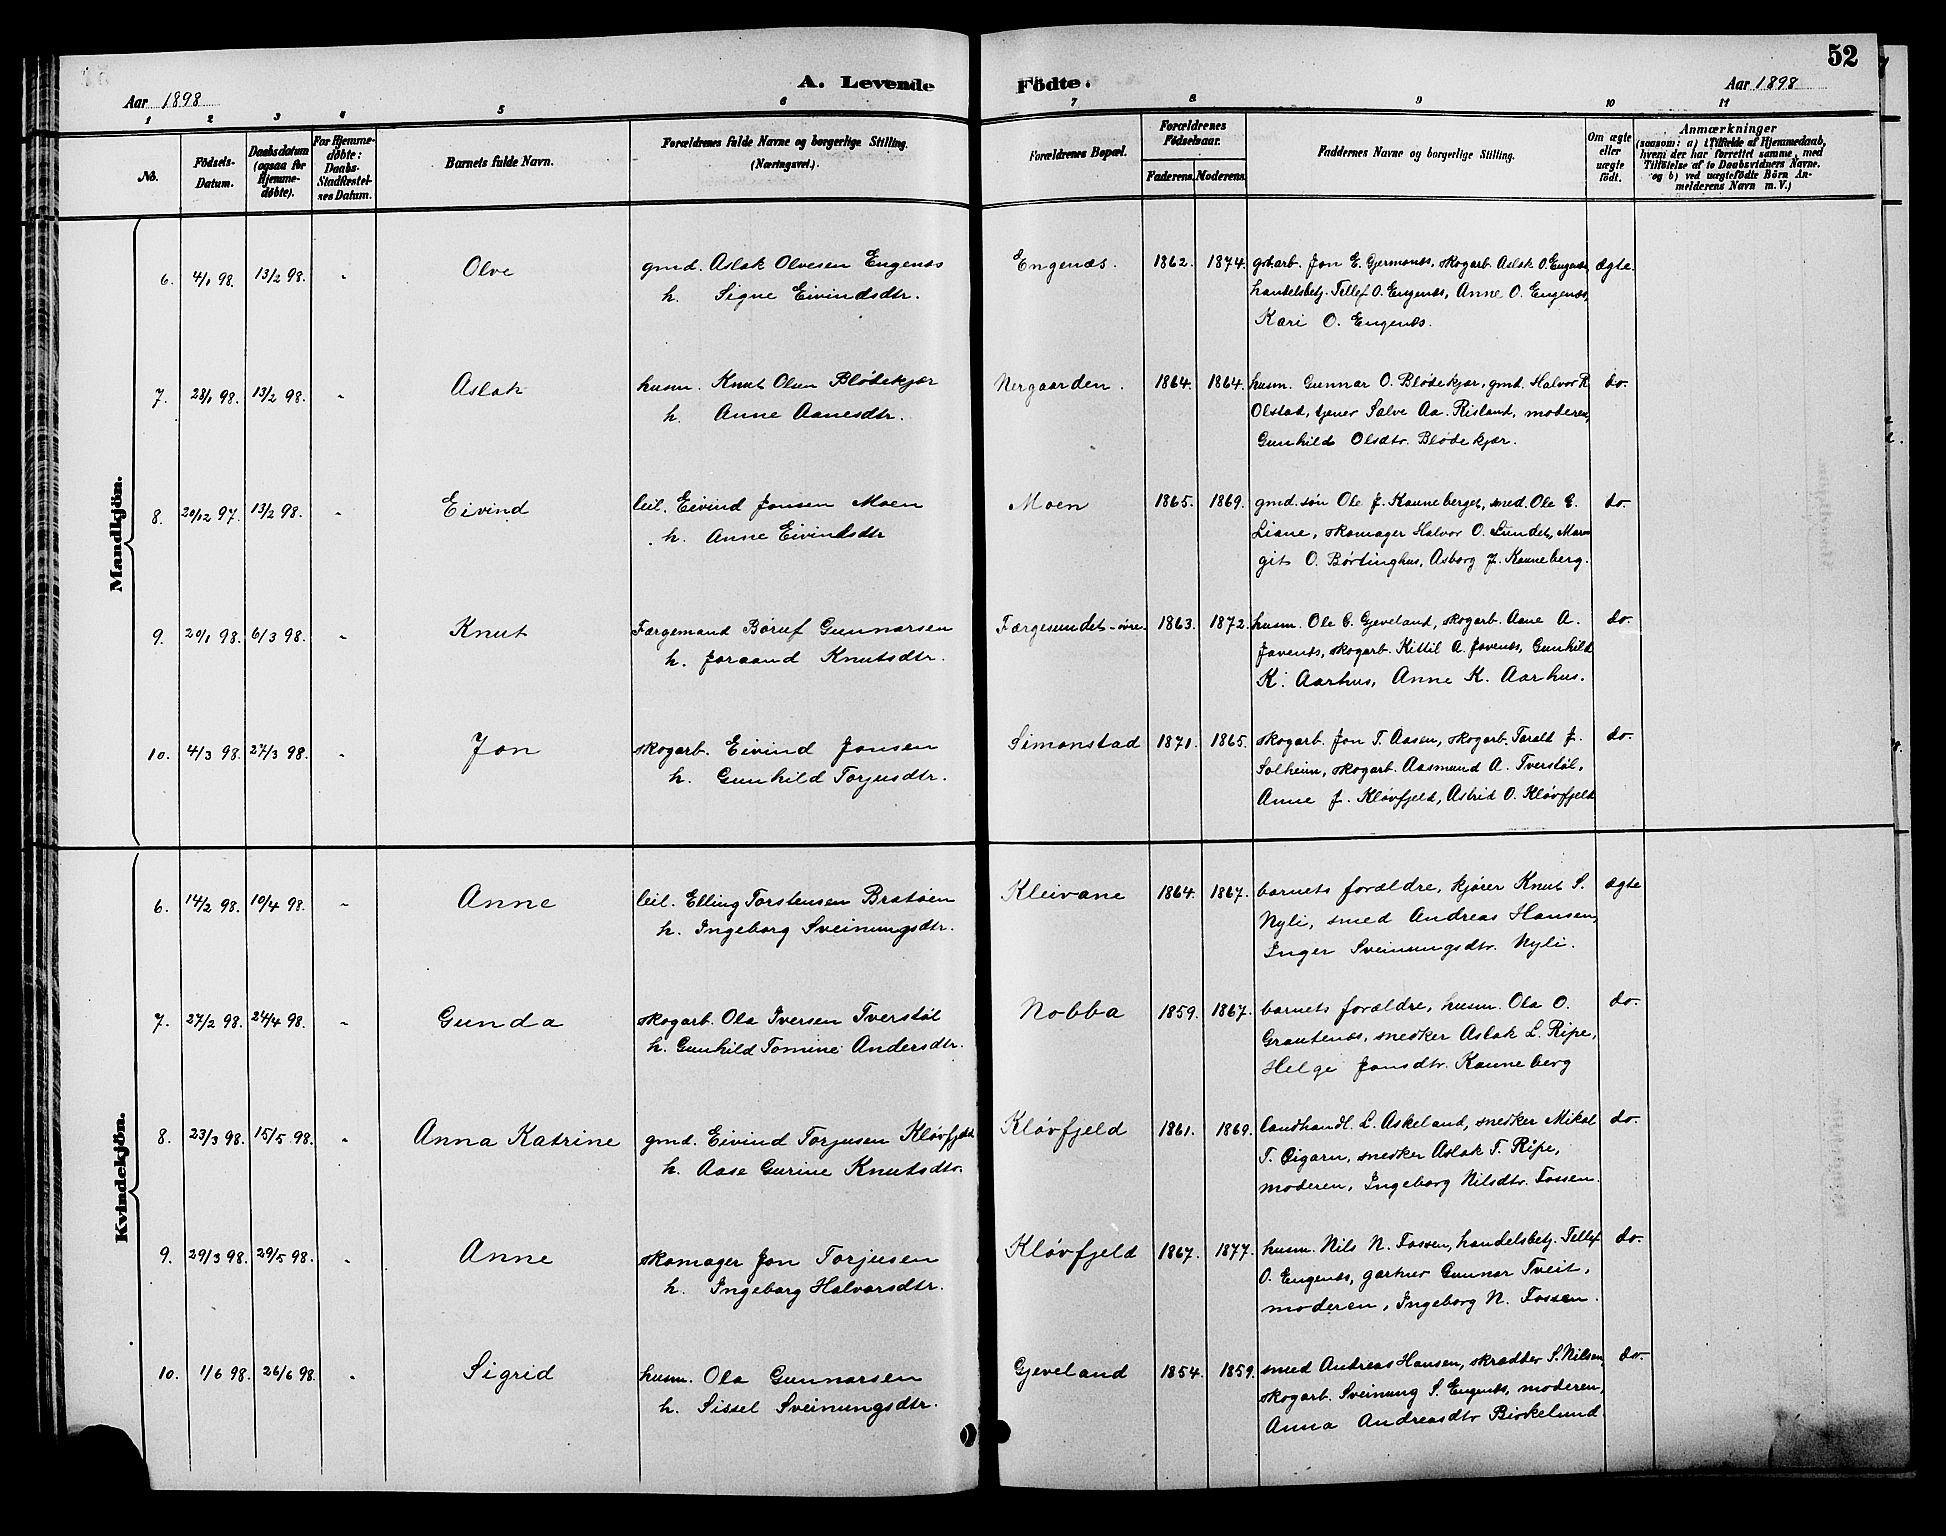 52
A. Levende Födte.
Aar 1898
Aar 1898
1 2 3 4 5 6 7 8 9 10 11
No.
Födsels-Datum.
Daabsdatum (ogsaa for Hjemme-døbte).
For Hjemme-døbte: Daabs-Stadfæstel-ses Datum.
Barnets fulde Navn.
Forældrenes fulde Navne og borgerlige Stilling. (Næringsvei.)
Forældrenes Bopæl.
Forældrenes Fødselsaar.
Faderens. Moderens.
Faddernes Navne og borgerlige Stilling.
Om ægte eller uægte født.
Anmærkninger
(saasom: a) i Tilfælde af Hjemmedaab, hvem der har forrettet samme, med Tilføielse af to Daabsvidners Navne. og b) ved uægtefödte Börn An-melderens Navn m. V.)
Mandkjön.
6. 4/1 98. 13/2 98. " Olve gmd. Aslak Olvesen Engenæs Engenæs. 1862. 1874. grbarb. Jon E. Gjermonæs, skogarb. Aslak O. Engenæs, ægte.
h. Signe Eivindsdtr. handelsbetj. Tellef O. Engenæs, Anne O. Engenæs,
Kari O. Engenæs.
7. 23/1 98. 13/2 98. " Aslak husm. Knut Olsen Blødekjær Nergaarden. 1864. 1864. husm. Gunnar O. Blødekjær, gmd. Halvor R. do.
h. Anne Aanesdtr. Olstad, tjener Salve Aa. Risland, moderen,
Gunhild Olsdtr. Blødekjær.
8. 20/12 97. 13/2 98. " Eivind leil. Eivind Jonsen Moen Moen 1865. 1869. gmd. søn Ole J. Kauneberget, smed. Ole E. do.
h. Anne Eivindsdtr Liane, skomager Halvor O. Lundet, Mar-
git O. Børtinghus, Asborg J. Kauneberg.
9. 20/1 98. 6/3 98. " Knut Færgemand Børuf Gunnarsen Færgesundet-øvre. 1863. 1872. husm. Ole G. Gjeveland, skogarb. Aane A. do.
h. Joraand Knutsdtr. Jovenæs, skogarb. Kittil A. Jovenæs, Gunhild
K. Aarhus, Anne K. Aarhus.
10. 4/3 98. 27/3 98. " Jon skogarb. Eivind Jonsen Simonstad 1871. 1865. skogarb. Jon T. Aasen, skogarb. Tarald J. do.
h. Gunhild Torjusdtr. Solheim, skogarb. Aasmund A. Tverstøl,
Anne J. Kløvfjeld, Astrid O. Kløvfjeld
Kvindekjön.
6. 14/2 98. 10/4 98. " Anne leil. Elling Torstensen Bratøen Kleivane 1864. 1867. barnets forældre, kjører Knut S. ægte
h. Ingeborg Sveinungsdtr. Nyli, smed Andreas Hansen,
Inger Sveinungsdtr. Nyli.
7. 27/2 98. 24/4 98. " Gunda skogarb. Ola Iversen Tverstøl Nobba 1859. 1867. barnets forældre, husm. Ola O. do.
h. Gunhild Tomine Andersdtr. Grautenæs, snedker Aslak L. Ripe,
Helge Jonsdtr. Kauneberg
8. 23/3 98. 15/5 98. " Anna Katrine gmd. Eivind Torjusen Kløvfjeld Kløvfjeld 1861. 1869. landhandl. L. Askeland, snedker Mikal do.
h. Aase Gurine Knutsdtr. T. Øigarn, snedker Aslak T. Ripe,
moderen, Ingeborg Nilsdtr. Fossen.
9. 29/3 98. 29/5 98. " Anne skomager Jon Torjusen Kløvfjeld 1867. 1877. husm. Nils N. Fossen, handelsbetj. Tellef do.
h. Ingeborg Halvorsdtr. O. Engenæs, gartner Gunnar Tveit,
moderen, Ingeborg N. Fossen.
10. 1/6 98. 26/6 98. " Sigrid husm. Ola Gunnarsen Gjeveland 1854. 1859. smed Andreas Hansen, skrædder S. Nilsen, do.
h. Sissel Sveinungsdtr. skogarb. Sveinung S. Engenæs, moderen,
Anna Andreasdtr Birkelund.